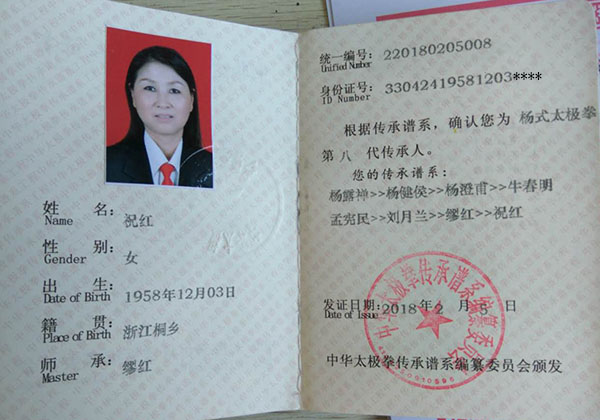 姓 名: 祝红
Name
性 别: 女
Gender
出 生: 1958年12月03日
Date of Birth
籍 贯: 浙江桐乡
Place of Birth
师 承: 缪红
Master
统一编号: 220180205008
Unified Number
身份证号: 33042419581203****
ID Number
根据传承谱系,确认您为 杨式太极拳
第 八 代传承人。
您的传承谱系:
杨露禅>>杨健侯>>杨澄甫>>牛春明
孟宪民>>刘月兰>>缪红>>祝红
发证日期: 2018年2月5日
Date of Issue
中华太极拳传承谱系编纂委员会
中华太极拳传承谱系编纂委员会颁发